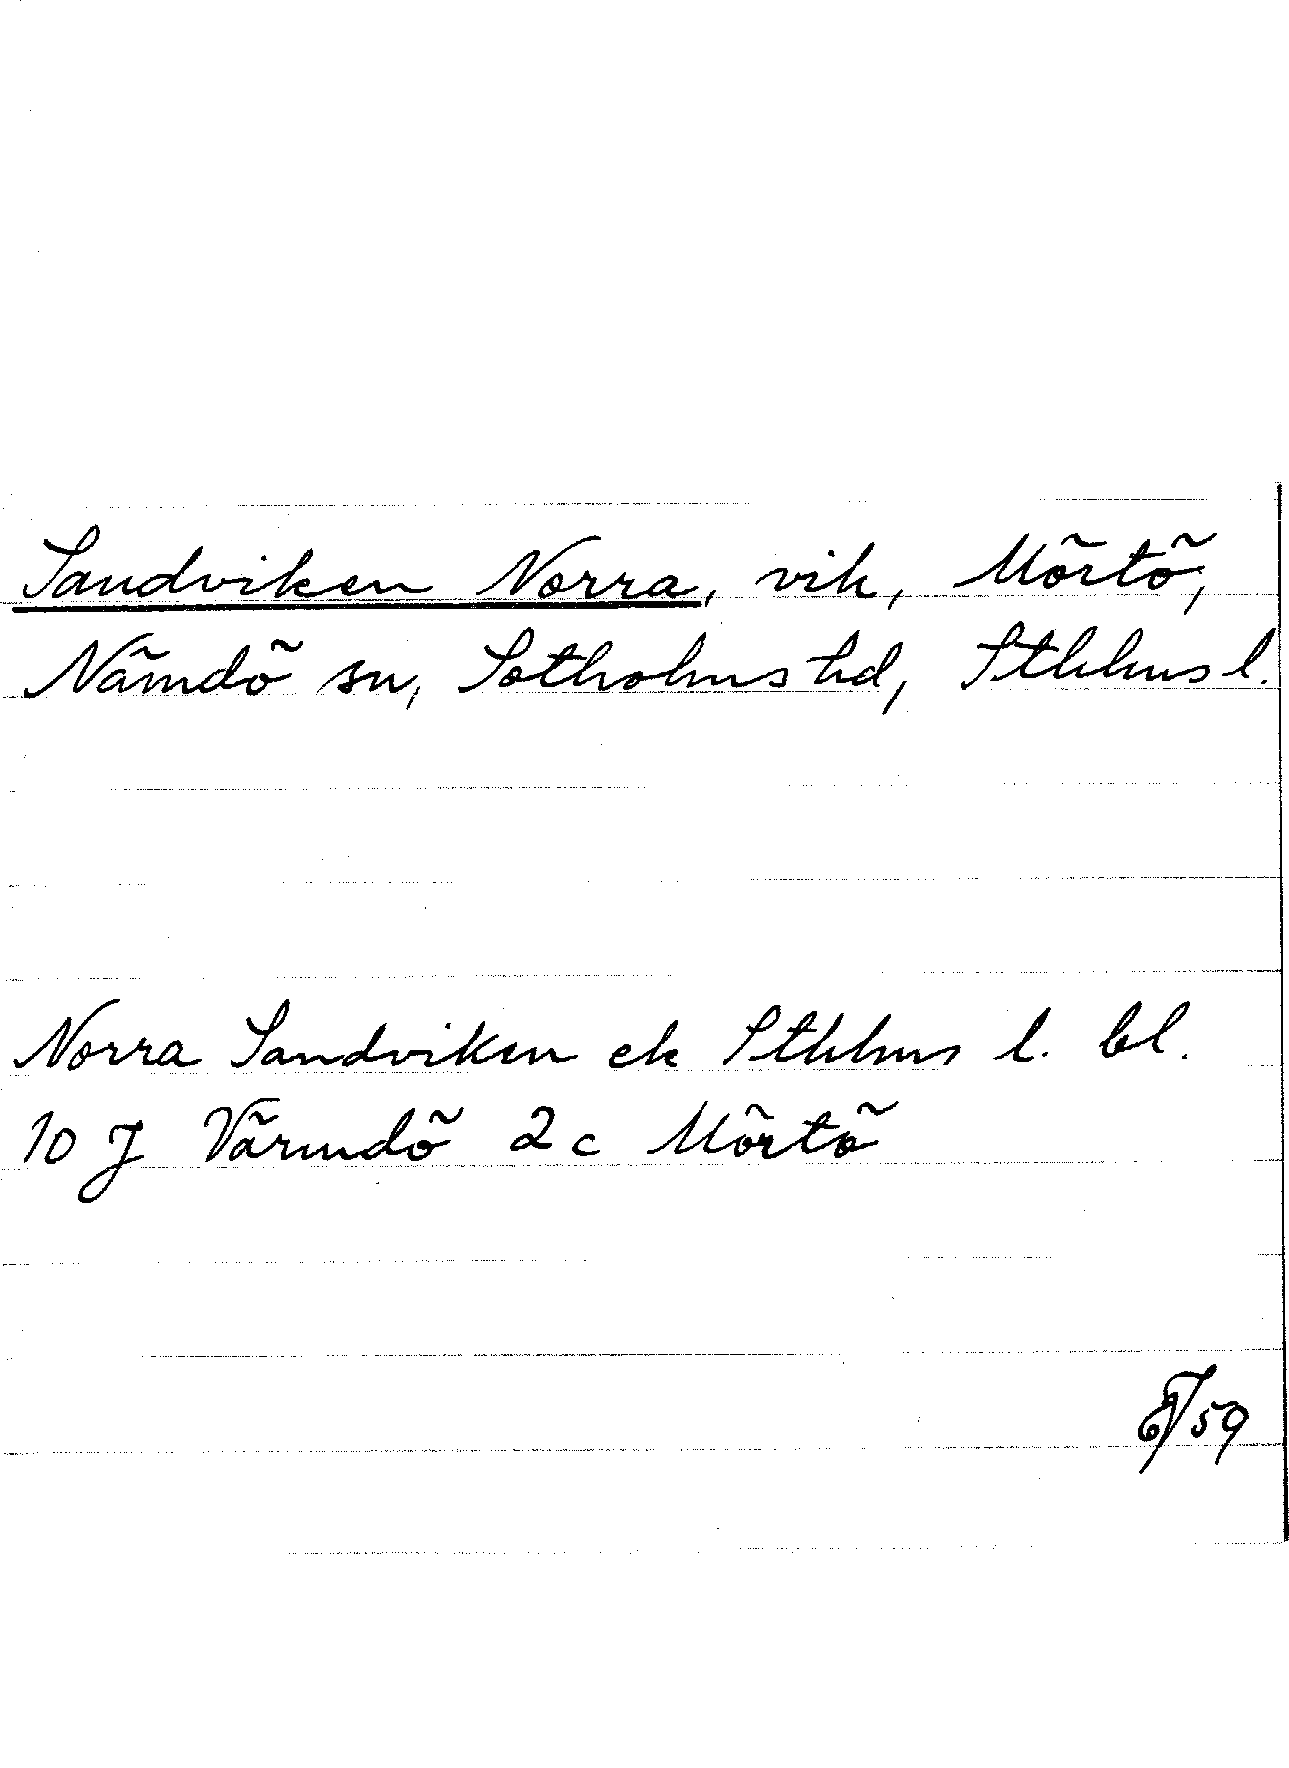 Sandviken Norra, vik, Mörtö,
Nämdö sn, Sotholms hd, Sthlms l.
Norra Sandviken ek Sthlms l. bl.
10 J Värmdö 2 c Mörtö
/59